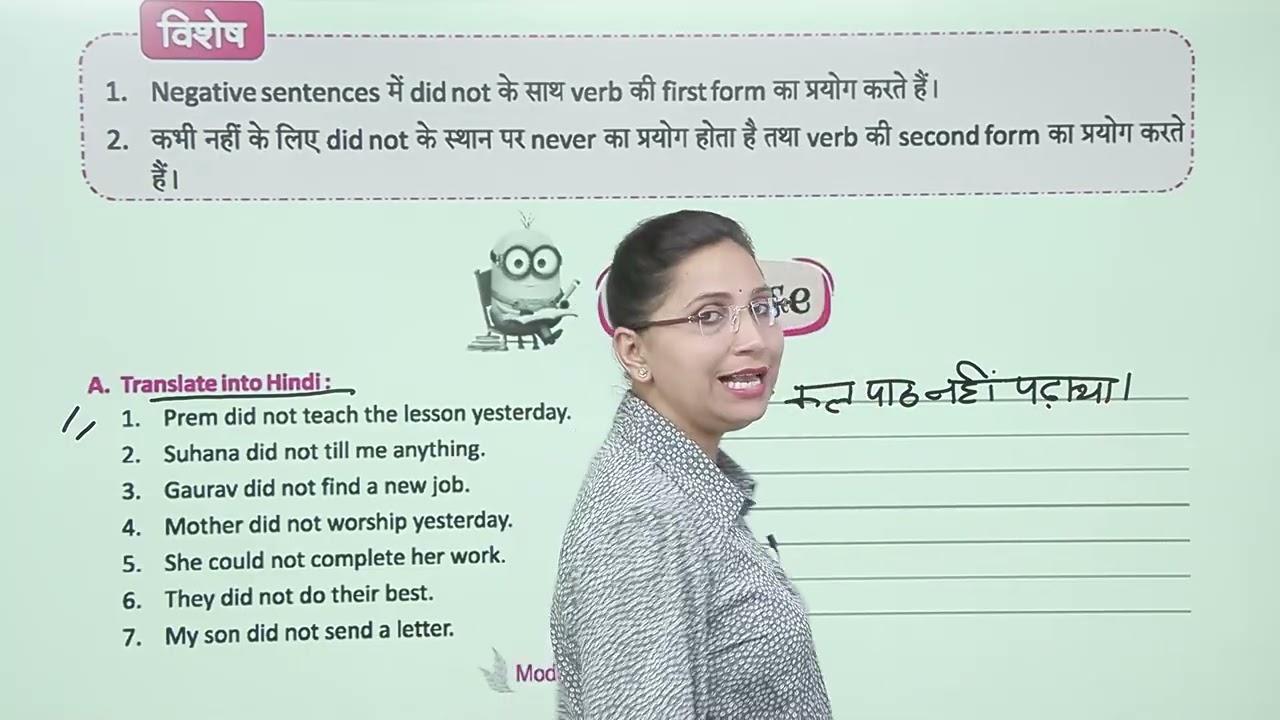 विशेष
1. Negative sentences में did not के साथ verb की first form का प्रयोग करते हैं।
2. कभी नहीं के लिए did not के स्थान पर never का प्रयोग होता है तथा verb की second form का प्रयोग करते
हैं।
A. Translate into Hindi :
1. Prem did not teach the lesson yesterday. कल पाठ नहीं पढ़ाया।
2. Suhana did not till me anything.
3. Gaurav did not find a new job.
4. Mother did not worship yesterday.
5. She could not complete her work.
6. They did not do their best.
7. My son did not send a letter.